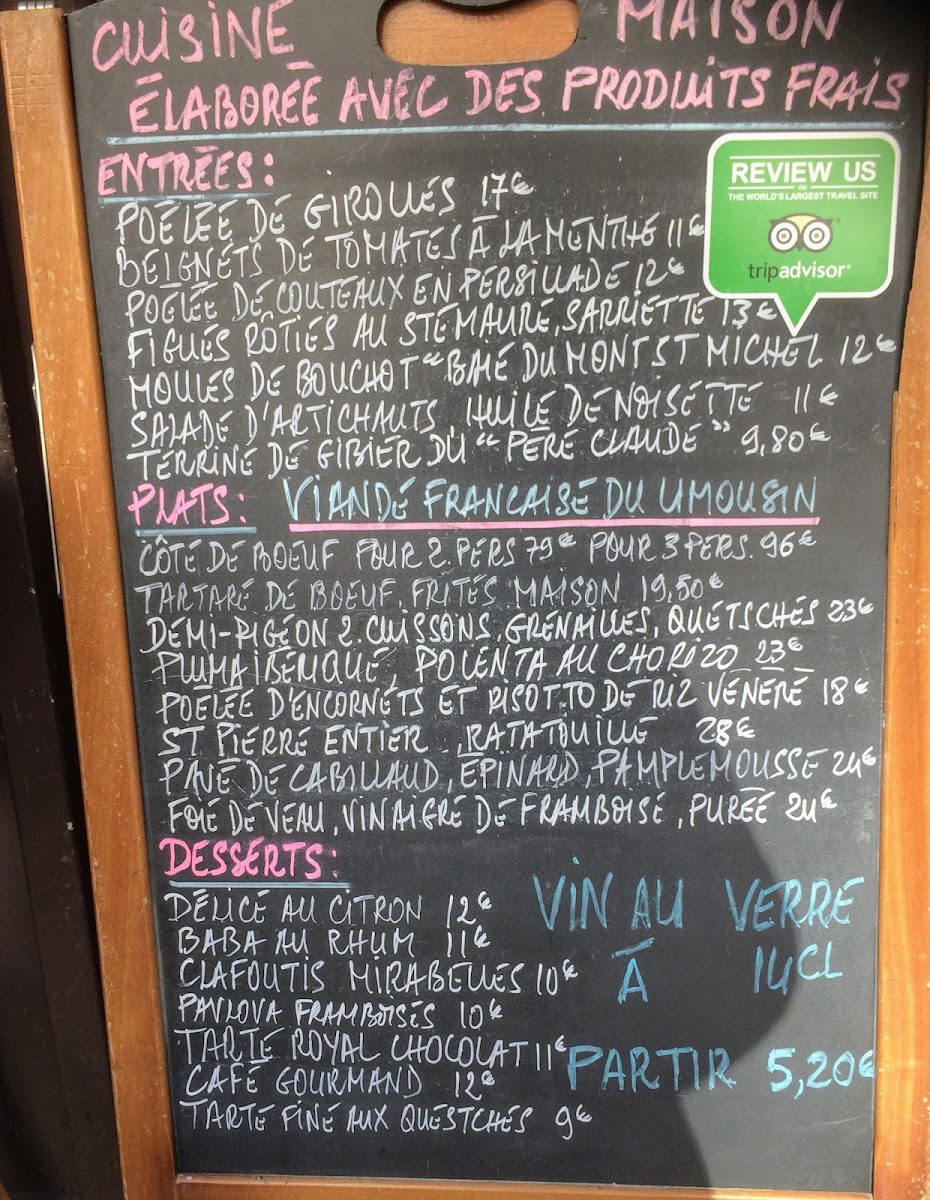 CUISINE MAISON
ÉLABORÉE AVEC DES PRODUITS FRAIS
ENTRÉES:
POÊLÉE DE GIROLLES 17€
BEIGNETS DE TOMATES À LA MENTHE 11€
POÊLÉE DE COUTEAUX EN PERSILLADE 12€
FIGUES RÔTIES AU STE MAURE, SARRIETTE 13€
MOULES DE BOUCHOT "BAIE DU MONT ST MICHEL 12€
SALADE D'ARTICHAUTS, HUILE DE NOISETTE 11€
TERRINE DE GIBIER DU "PÈRE CLAUDE" 9,80€
REVIEW US
ON
THE WORLD'S LARGEST TRAVEL SITE
tripadvisor®
PLATS: VIANDE FRANCAISE DU LIMOUSIN
CÔTE DE BOEUF POUR 2.PERS 79€ POUR 3 PERS. 96€
TARTARE DE BOEUF, FRITES MAISON 19,50€
DEMI-PIGEON 2.CUISSONS, GRENAILLES, QUETSCHES 23€
PLUMA IBERIQUE, POLENTA AU CHORIZO 23€
POÊLÉE D'ENCORNETS ET RISOTTO DE RIZ VENERE 18€
ST PIERRE ENTIER, RATATOUILLE 28€
PAVÉ DE CABILLAUD, ÉPINARD, PAMPLEMOUSSE 24€
FOIE DE VEAU, VINAIGRE DE FRAMBOISE, PURÉE 24€
DESSERTS:
DÉLICE AU CITRON 12€
BABA AU RHUM 11€
CLAFOUTIS MIRABELLES 10€
PAVLOVA FRAMBOISES 10€
TARTE ROYAL CHOCOLAT 11€
CAFÉ GOURMAND 12€
TARTE FINE AUX QUESTCHES 9€
VIN AU VERRE
À 14CL
PARTIR 5,20€